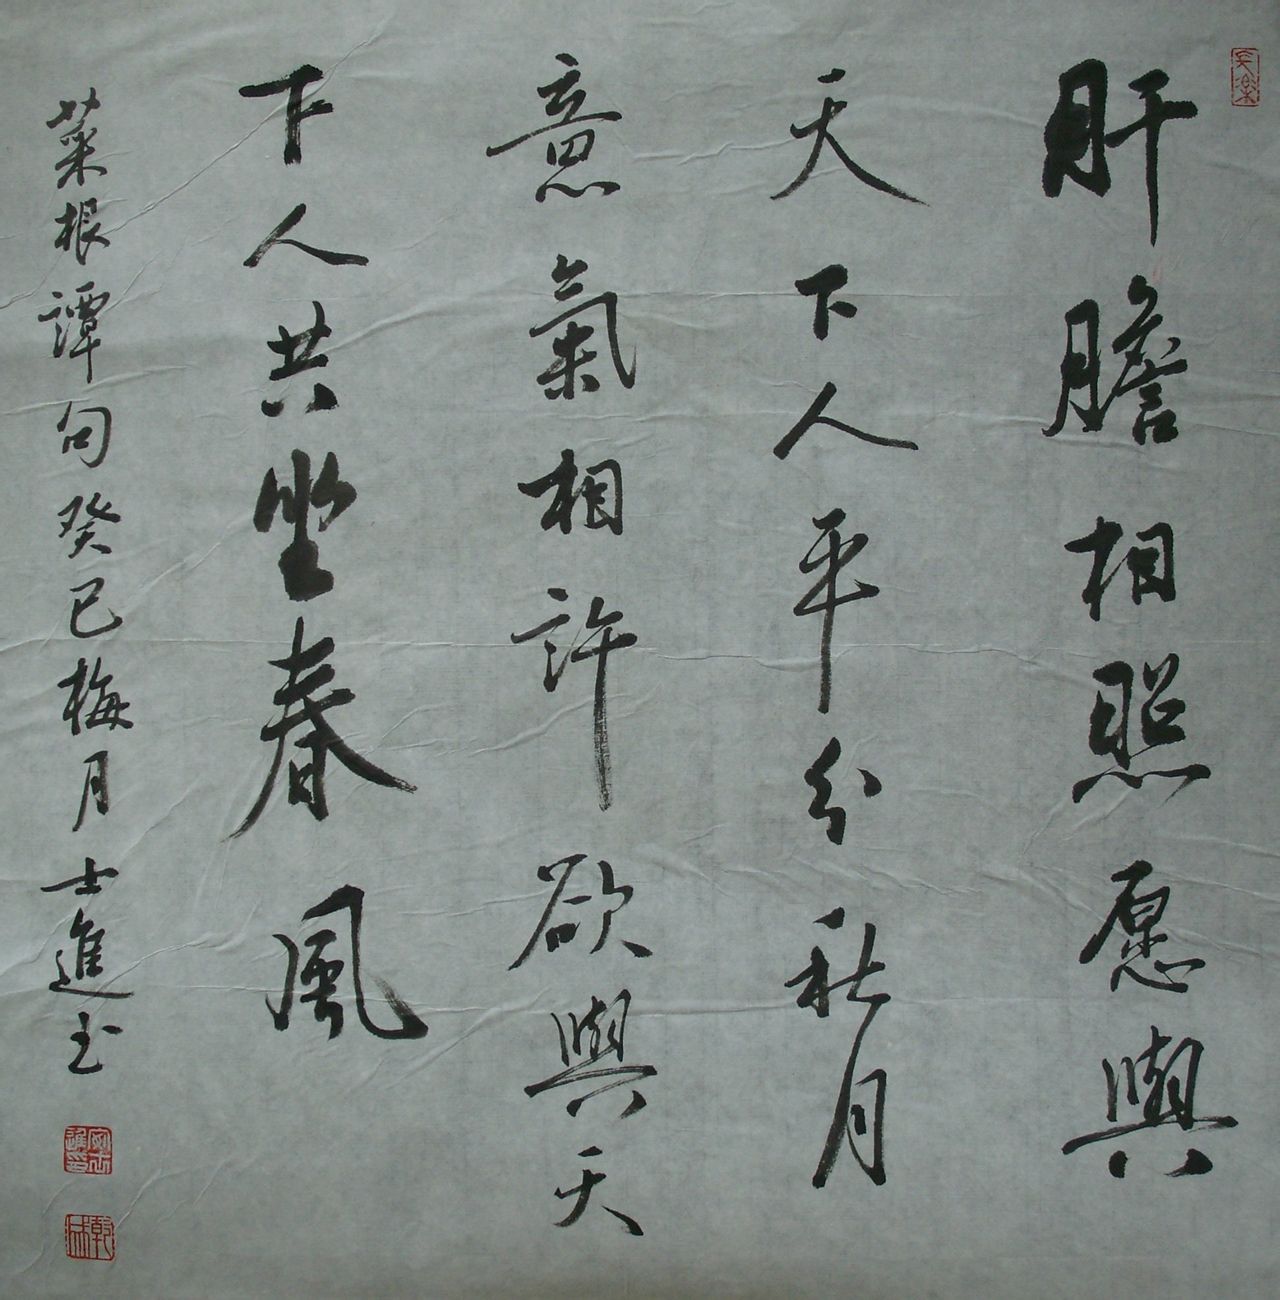 肝膽相照愿與
天下人平分秋月
意氣相許欲與天
下人共坐春風
菜根譚句癸巳梅月士進书